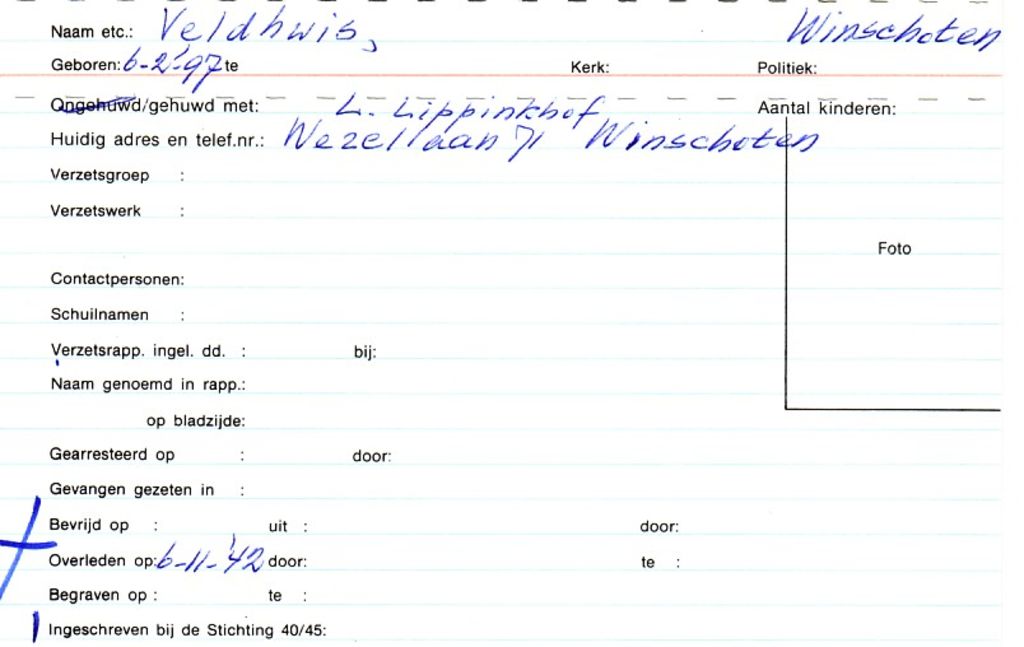 Naam etc.: Veldhuis, Winschoten
Geboren: 6-2-'97 te Kerk: Politiek:
Ongehuwd/gehuwd met: L. Lippinkhof Aantal kinderen:
Huidig adres en telef.nr.: Wezellaan 71 Winschoten
Verzetsgroep :
Verzetswerk :
Foto
Contactpersonen:
Schuilnamen :
Verzetsrapp. ingel. dd. : bij:
Naam genoemd in rapp.:
op bladzijde:
Gearresteerd op : door:
Gevangen gezeten in :
Bevrijd op : uit : door:
Overleden op: 6-11-'42 door: te :
Begraven op : te :
Ingeschreven bij de Stichting 40/45: